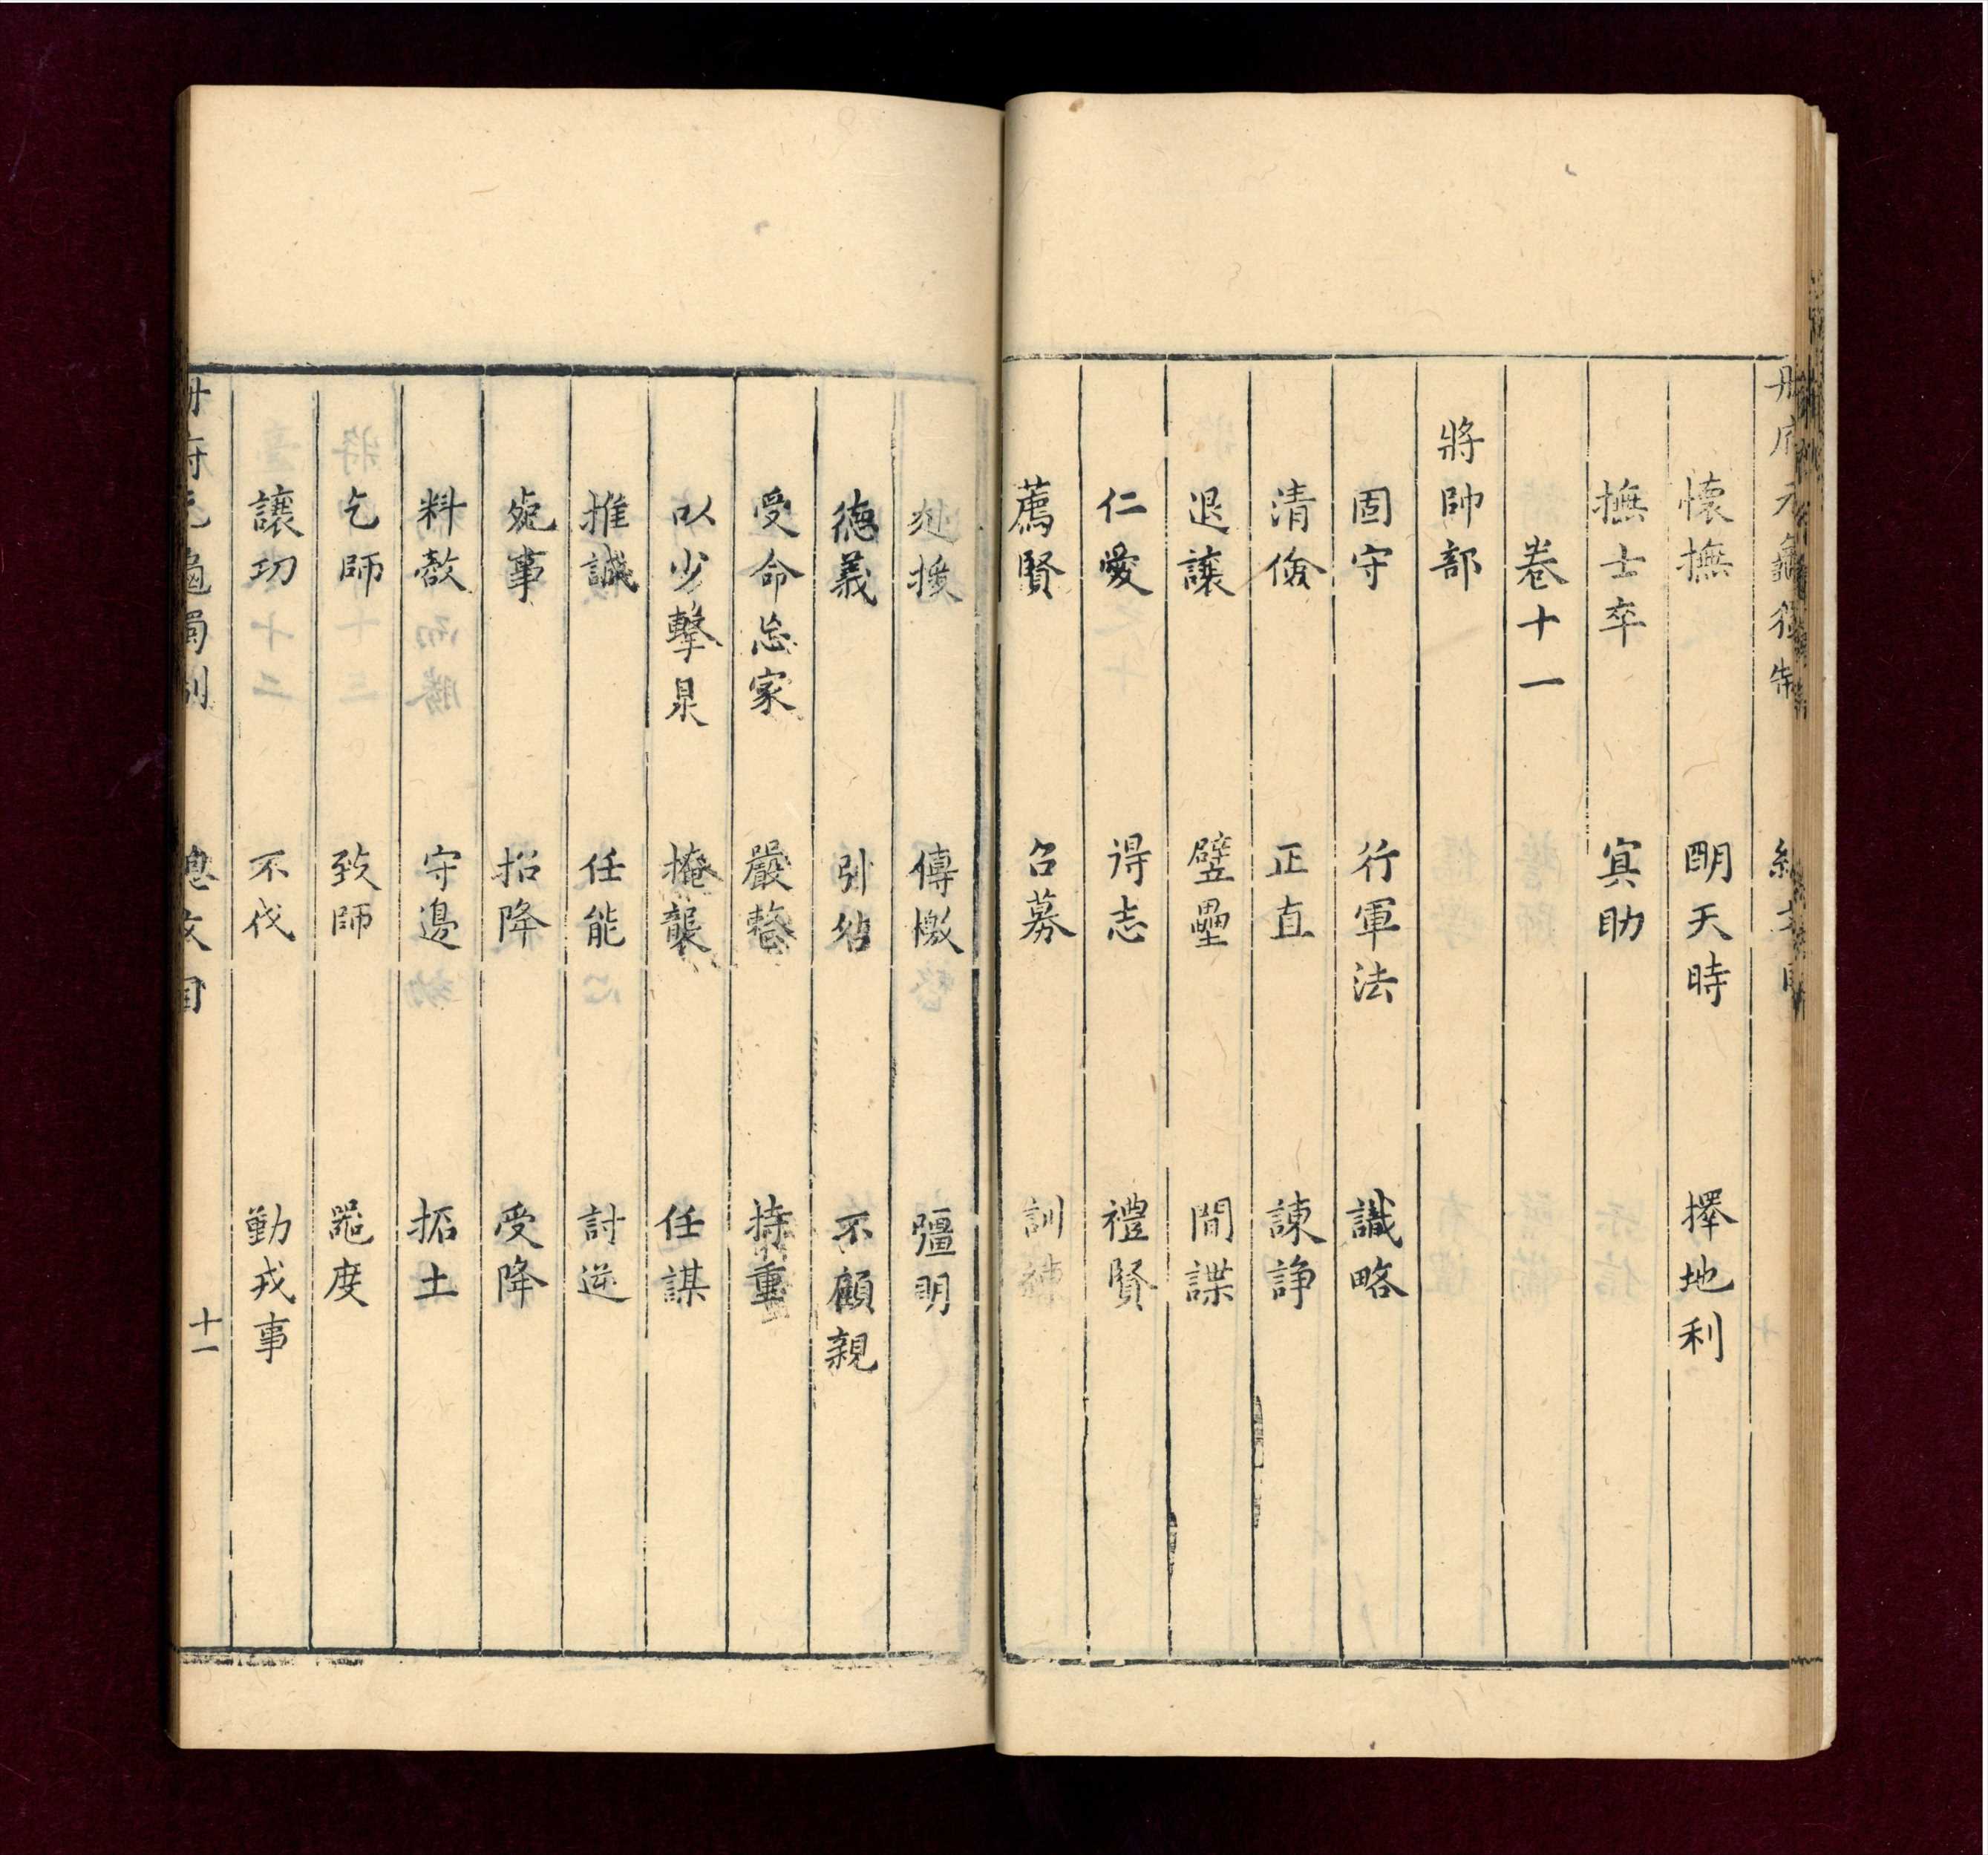 懷撫 明天時 擇地利
撫士卒 冥助
卷十一
將帥部
固守 行軍法 識略
清儉 正直 諫諍
退讓 壁壘 間諜
仁愛 得志 禮賢
薦賢 召募 訓練
赴援 傳檄 彊明
德義 引咎 不顧親
受命忘家 嚴整 持重
以少擊衆 掩襲 任謀
推誠 任能 討逆
䖏事 招降 受降
料敵 守邊 拓土
乞師 致師 噐度
讓功 不伐 勤戎事
十一